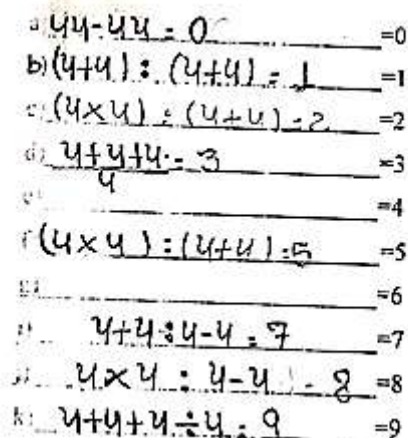 a) 44-44 = 0 =0
b) (4+4) : (4+4) = 1 =1
c) (4×4) : (4+4) = 2 =2
d) 4+4+4 = 3 =3
4
e) =4
f) (4×4) : (4+4) = 5 =5
=6
4+4:4-4 = 7 =7
4×4 : 4-4 = 8 =8
k) 4+4+4÷4 = 9 =9